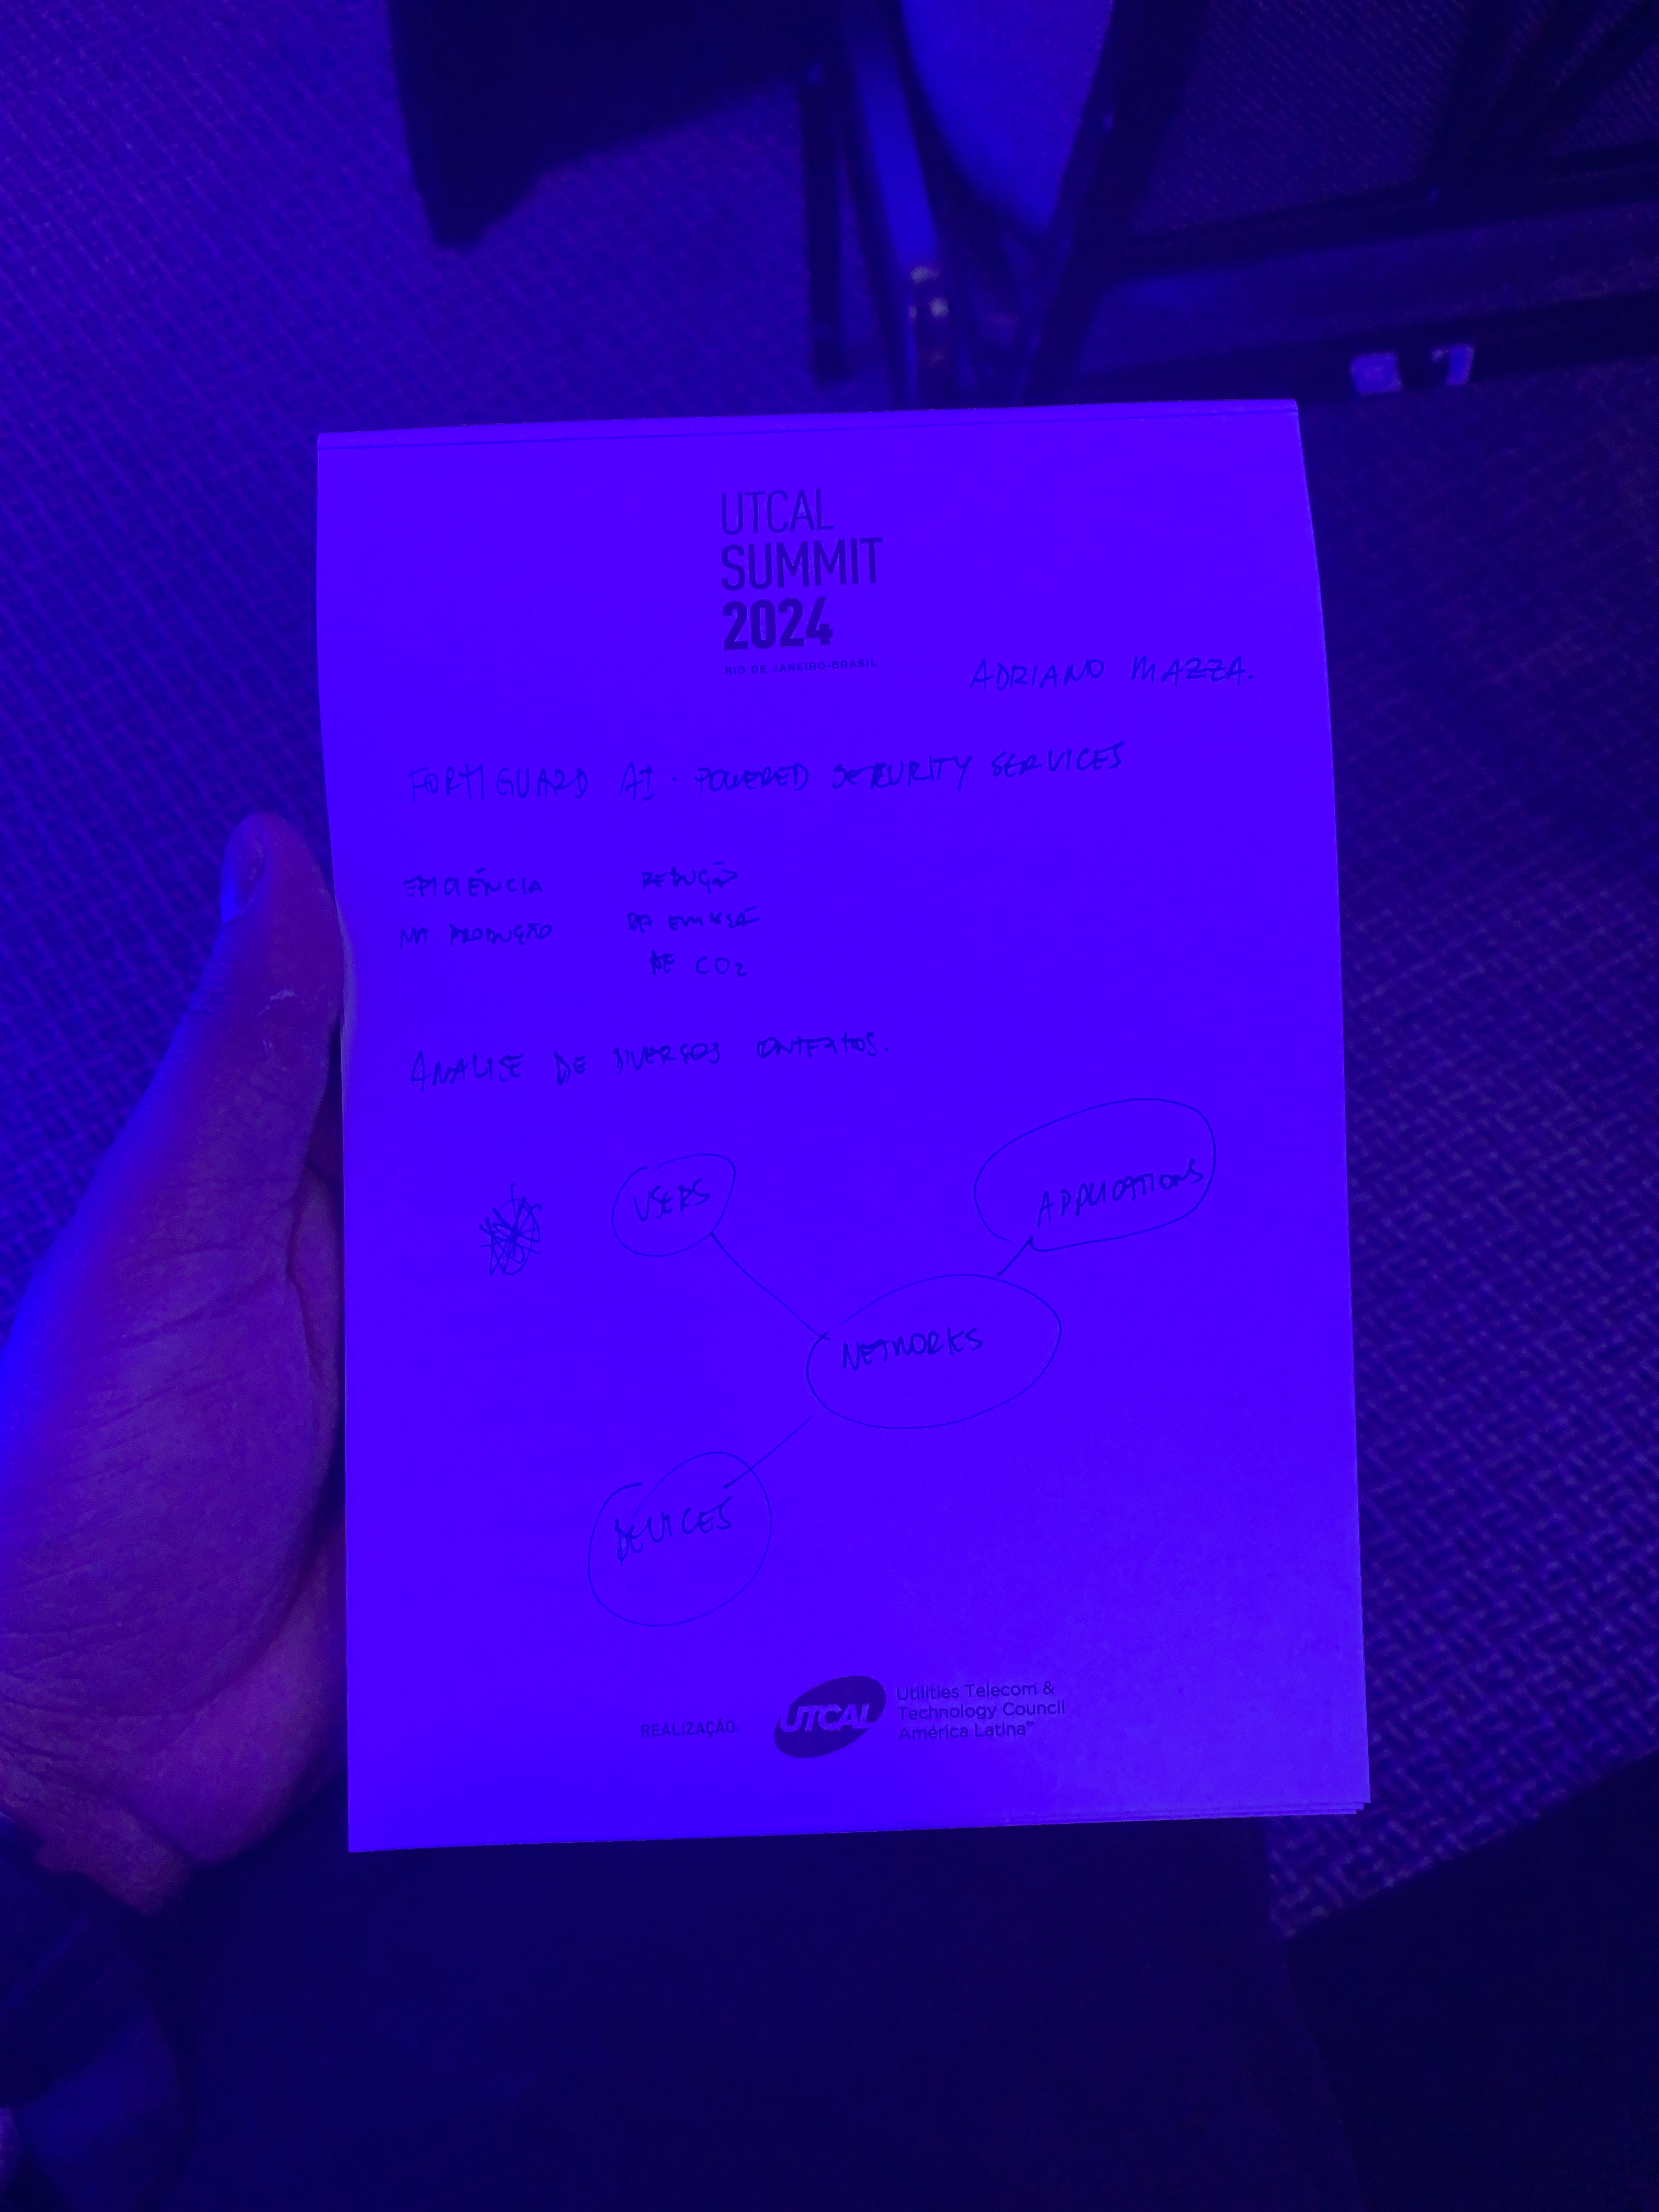 UTCAL
SUMMIT
2024
RIO DE JANEIRO-BRASIL
ADRIANO MAZZA.
FORTIGUARD AI-POWERED SECURITY SERVICES
EFICIÊNCIA
NA PRODUÇÃO
REDUÇÃO
DA EMISSÃO
DE CO2
ANALISE DE DIVERSOS CONTEXTOS.
USERS
APPLICATIONS
NETWORKS
DEVICES
REALIZAÇÃO:
UTCAL
Utilities Telecom &
Technology Council
América Latina™